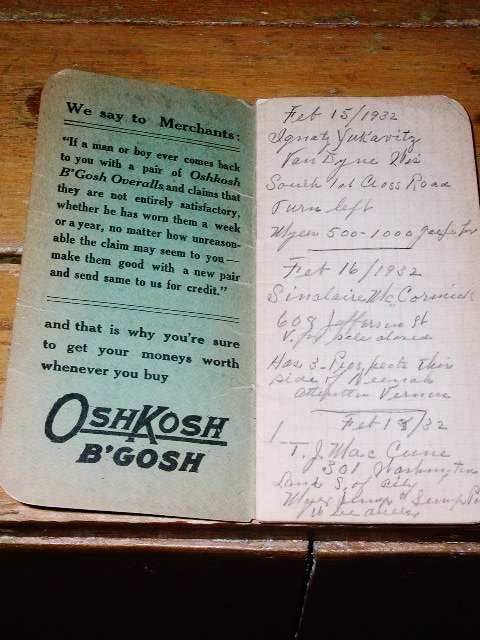 We say to Merchants:
"If a man or boy ever comes back
to you with a pair of Oshkosh
B'Gosh Overalls, and claims that
they are not entirely satisfactory,
whether he has worn them a week
or a year, no matter how unreason-
able the claim may seem to you—
make them good with a new pair
and send same to us for credit."
and that is why you're sure
to get your moneys worth
whenever you buy
OSHKOSH
B'GOSH
Feb 15/1932
Ignatz Yukavitz
Van Dyne Wis
South 1st Cross Road
Turn left
Myers 500-1000
Feb 16/1932
Sinclaire McCormick
608 Jefferson St
Has 3 Prospects this
side of Neenah
attention Vernon
Feb 18/32
T. J. Mac Cune
301 Washington
Land S. of city
Myers pump